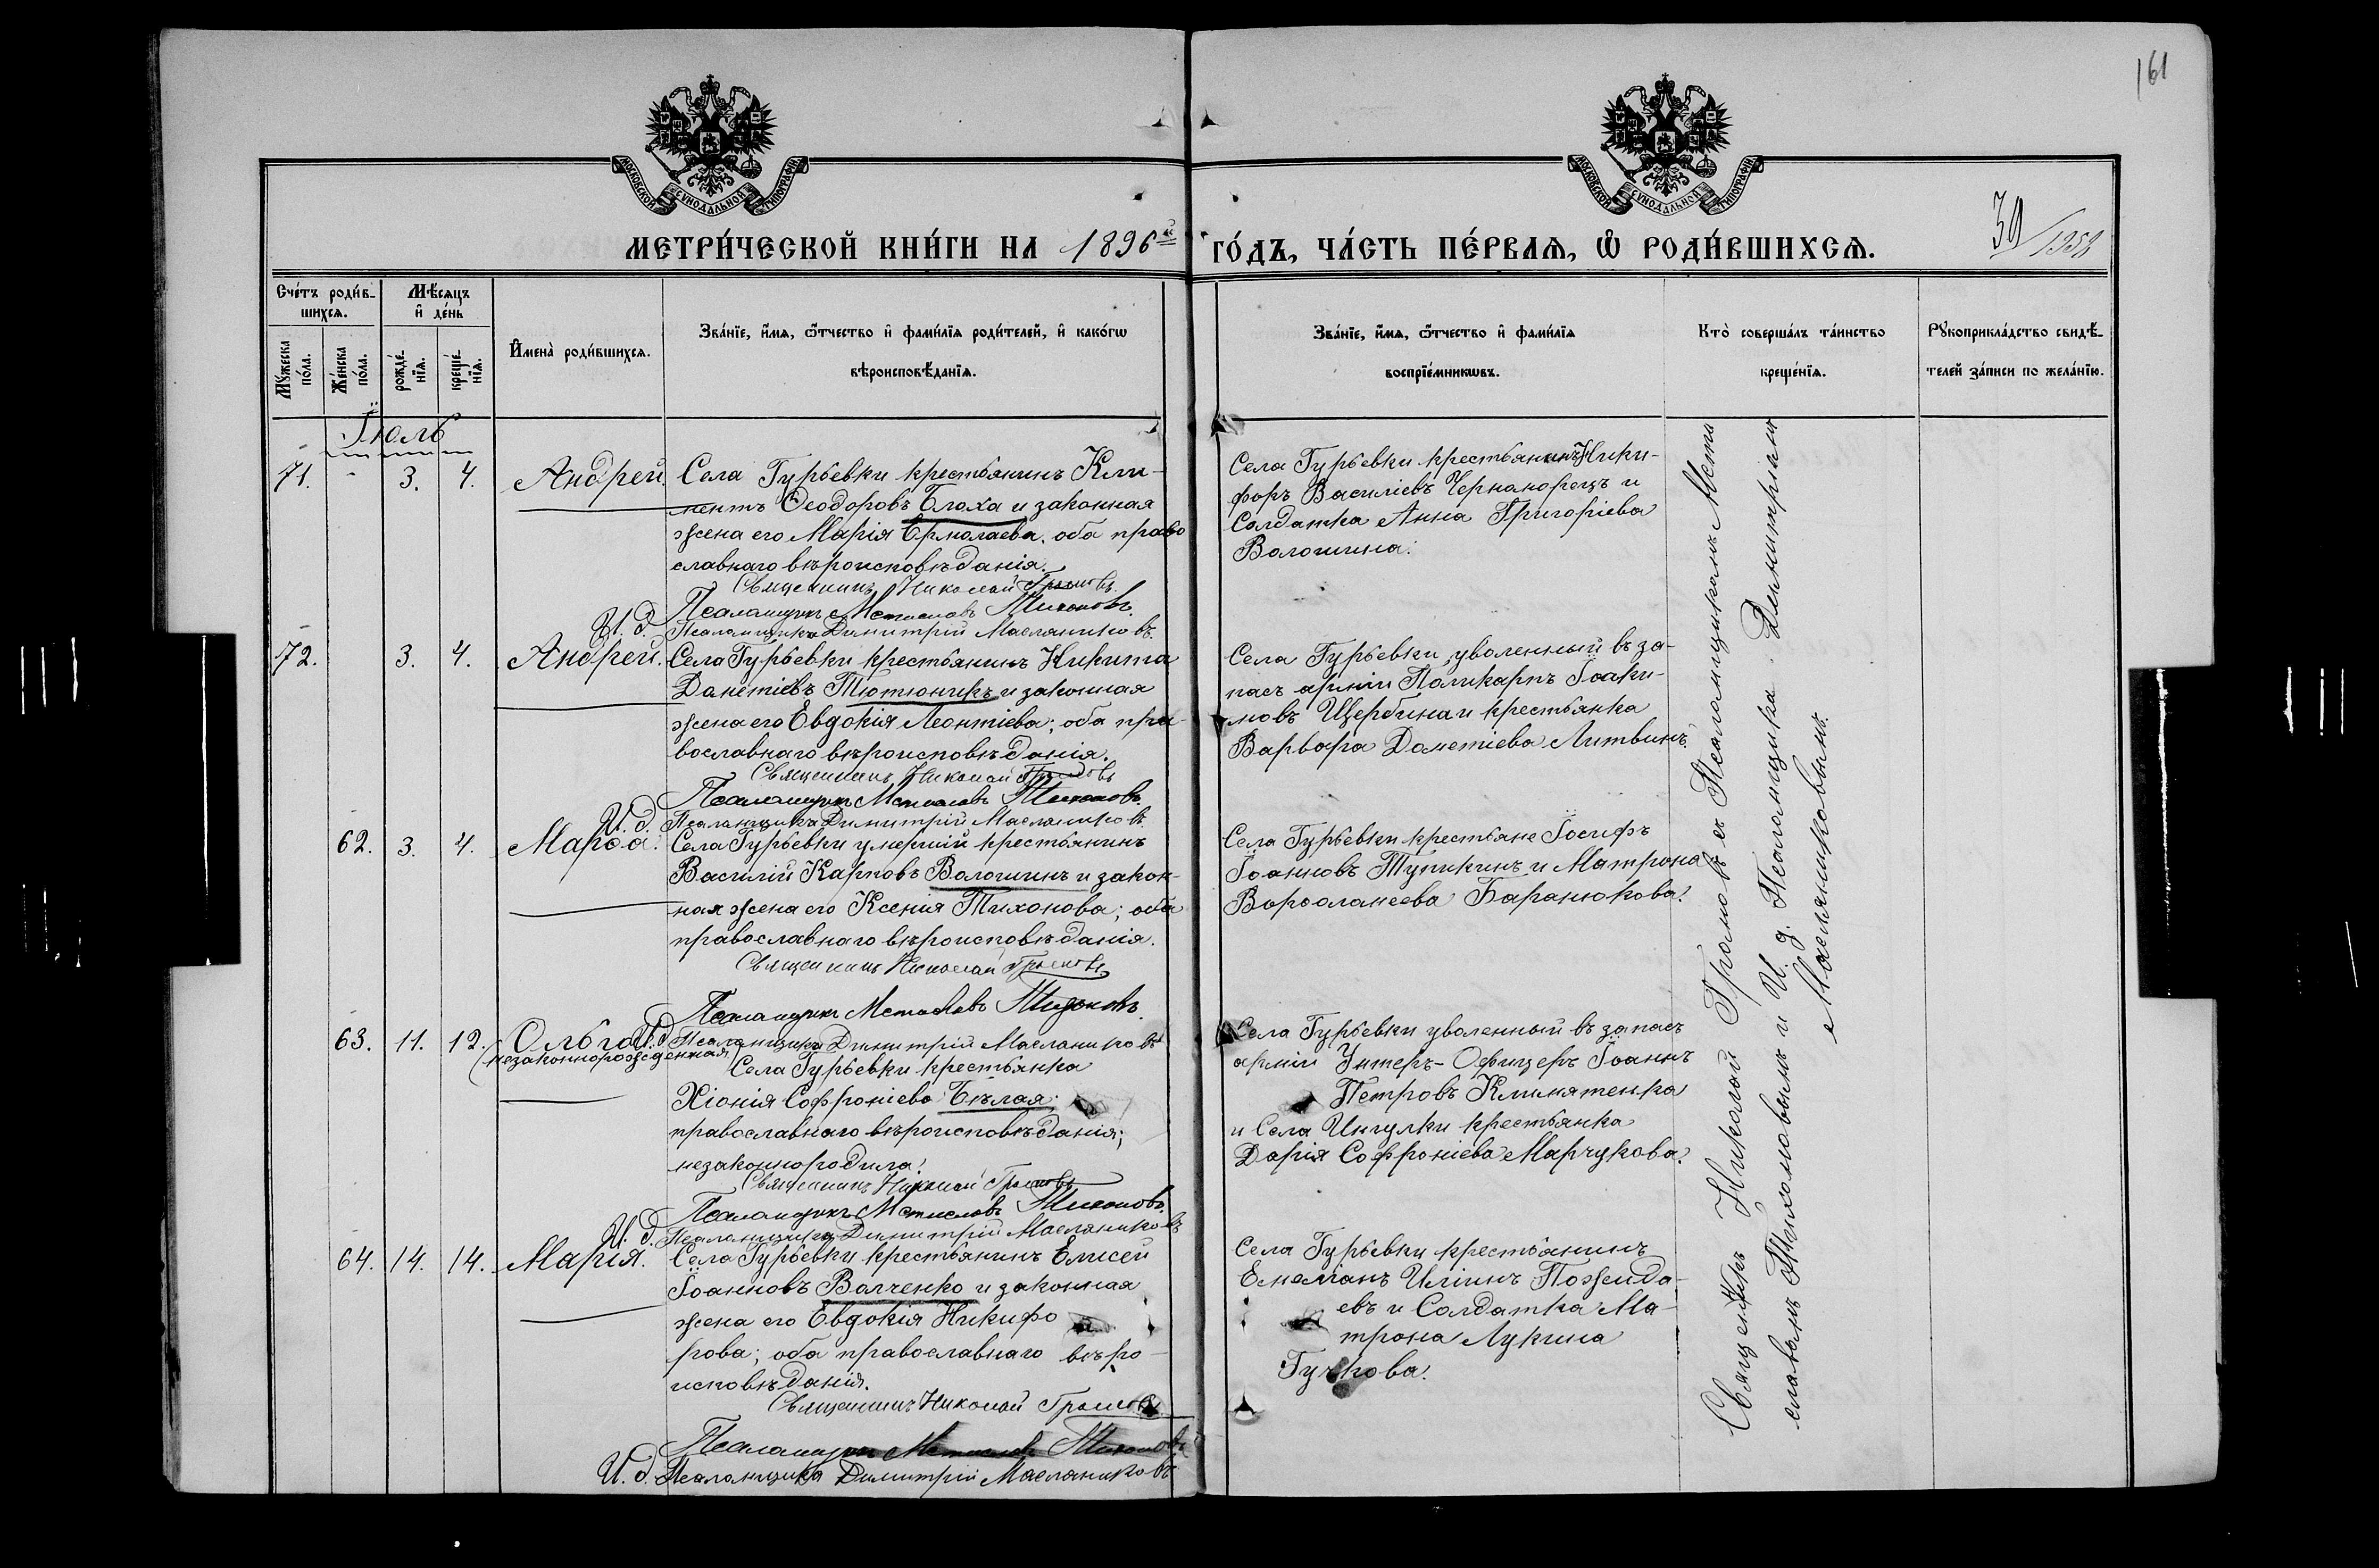 161
МОСКОВСКОЙ СУНОДАЛЬНОЙ ТИПОГРАФІИ
МОСКОВСКОЙ СУНОДАЛЬНОЙ ТИПОГРАФІИ
МЕТРИ́ЧЕСКОЙ КНИ́ГИ НА 1896й ГО́ДЪ, ЧА́СТЬ ПЕ́РВАѦ, Ѡ҆ РОДИ́ВШИХСѦ.
39/1358
Сче́тъ роди́в-
шихсѧ.
Мѣ́сѧцъ
и҆ де́нь
Мꙋ́жеска
по́ла.
Же́нска
по́ла.
рожде́-
нїѧ.
креще́-
нїѧ.
И҆мена̀ роди́вшихсѧ.
Зва́нїе, и҆́мѧ, ѻ҆́тчество и҆ фами́лїѧ роди́телей, и҆ како́гѡ
вѣроисповѣ́данїѧ.
Зва́нїе, и҆́мѧ, ѻ҆́тчество и҆ фами́лїѧ
воспрїе́мникѡвъ.
Кто̀ соверша́лъ та́инство
креще́нїѧ.
Рꙋкоприкла́дство свидѣ́-
телей за́писи по жела́нїю.
Іюль
71. - 3. 4. Андрей.
Села Гурьевки крестьянинъ Кли-
ментъ Ѳеодоровъ Блоха и законная
жена его Марія Ермолаева. оба право
славнаго вѣроисповѣданія.
Священникъ Николай Громовъ
Псаломщикъ Мстиславъ Тихоновъ.
И. д. Псаломщика Димитрій Масляниковъ.
Села Гурьевки крестьянинъ Ники-
форъ Василіевъ Черноморецъ и
Солдатка Анна Григоріева
Волошина.
72. 3. 4. Андрей.
Села Гурьевки крестьянинъ Никита
Данетіевъ Тютюникъ и законная
жена его Евдокія Леонтіева; оба пра-
вославнаго вѣроисповѣданія.
Священникъ Николай Громовъ
Псаломщикъ Мстиславъ Тихоновъ.
И. д. Псаломщика Димитрій Масляниковъ
Села Гурьевки, уволенный въ за-
пасъ арміи Поликарпъ Іоаки-
мовъ Щербина и крестьянка
Варвара Дометіева Литвинъ.
62. 3. 4. Марѳа.
Села Гурьевки умершій крестьянинъ
Василій Карповъ Волошинъ и закон-
ная жена его Ксенія Тихонова; оба
православнаго вѣроисповѣданія.
Священникъ Николай Громовъ
Псаломщикъ Мстиславъ Тихоновъ.
И. д. Псаломщика Димитрій Масляниковъ
Села Гурьевки крестьяне Іосифъ
Іоанновъ Тупикинъ и Матрона
Варѳоломеева Баранюкова.
63. 11. 12. Ольга
(незаконнорожденная)
Села Гурьевки крестьянка
Хіонія Софроніева Бѣлая;
православнаго вѣроисповѣданія;
незаконнородила.
Священникъ Николай Громовъ
Псаломщикъ Мстиславъ Тихоновъ.
И. д. Псаломщика Димитрій Масляниковъ
Села Гурьевки уволенный въ запасъ
арміи Унтеръ-Офицеръ Іоаннъ
Петровъ Климятенко
и Села Ингулки крестьянка
Дарія Софроніева Марчукова.
64. 14. 14. Марія.
Села Гурьевки крестьянинъ Елисей
Іоанновъ Волченко и законная
жена его Евдокія Никифо
рова; оба православнаго вѣро-
исповѣданія.
Священникъ Николай Громовъ
Псаломщикъ Мстиславъ Тихоновъ
И. д. Псаломщика Димитрій Масляниковъ
Села Гурьевки крестьянинъ
Емеліанъ Иліинъ Пожида-
евъ и Солдатка Ма-
трона Лукина
Гучкова.
Священникъ Николай Громовъ съ Псаломщикомъ Мсти
славомъ Тихоновымъ и И. д. Псаломщика Димитріемъ
Масляниковымъ.